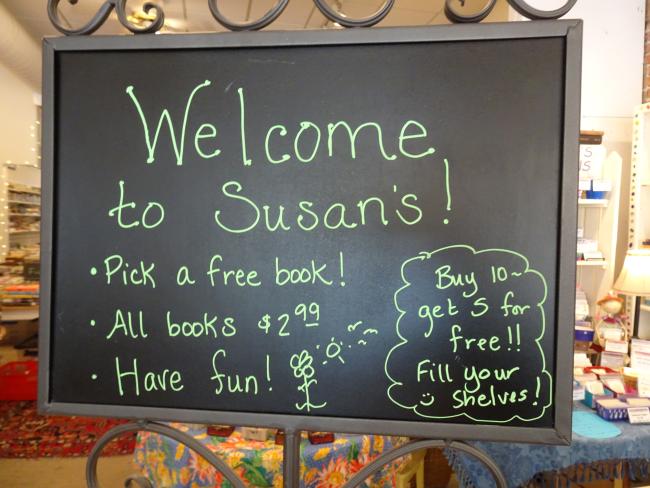 Welcome
to Susan's!
• Pick a free book!
• All books $2.99
• Have fun!
Buy 10~
get 5 for
free!!
Fill your
☺ shelves!